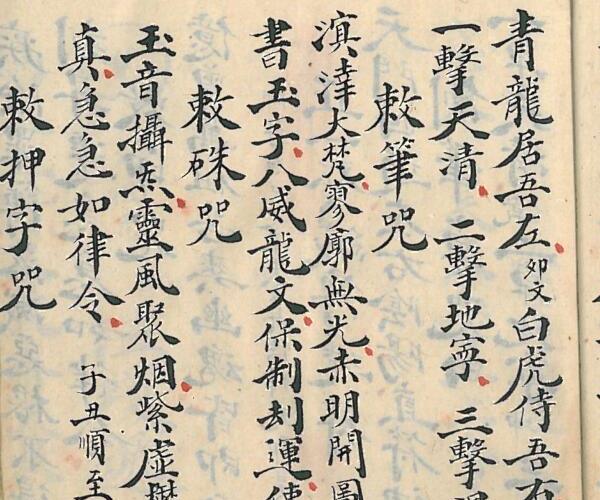 青龍居吾左卯文白虎侍吾右
一擊天清二擊地寧三擊
敕筆咒
溟涬大梵寥廓無光赤明開圖
書玉字八威龍文保制刦運使
敕硃咒
玉音攝炁靈風聚烟紫虛
真急急如律令子丑順至
敕押字咒